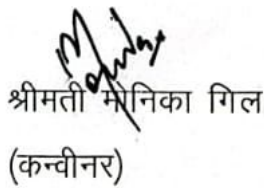 श्रीमती मोनिका गिल
(कन्वीनर)